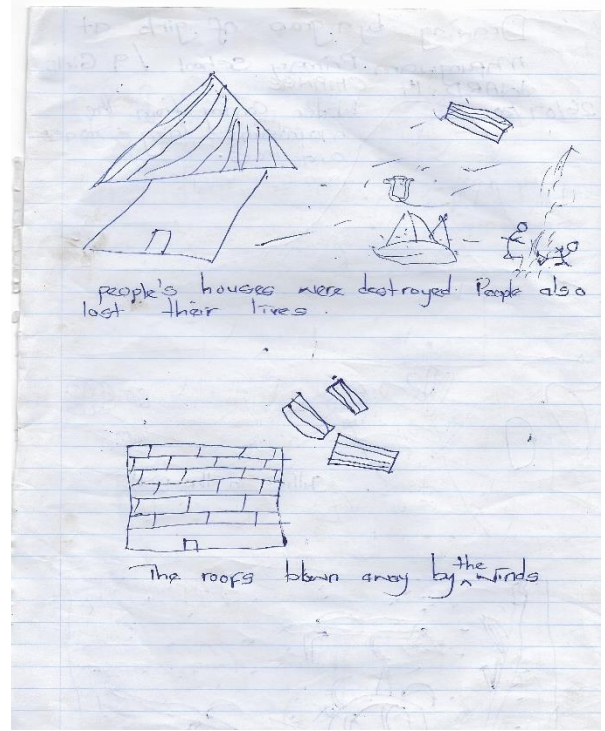 people's houses were destroyed. People also
lost their lives.
The roofs blown away by the winds